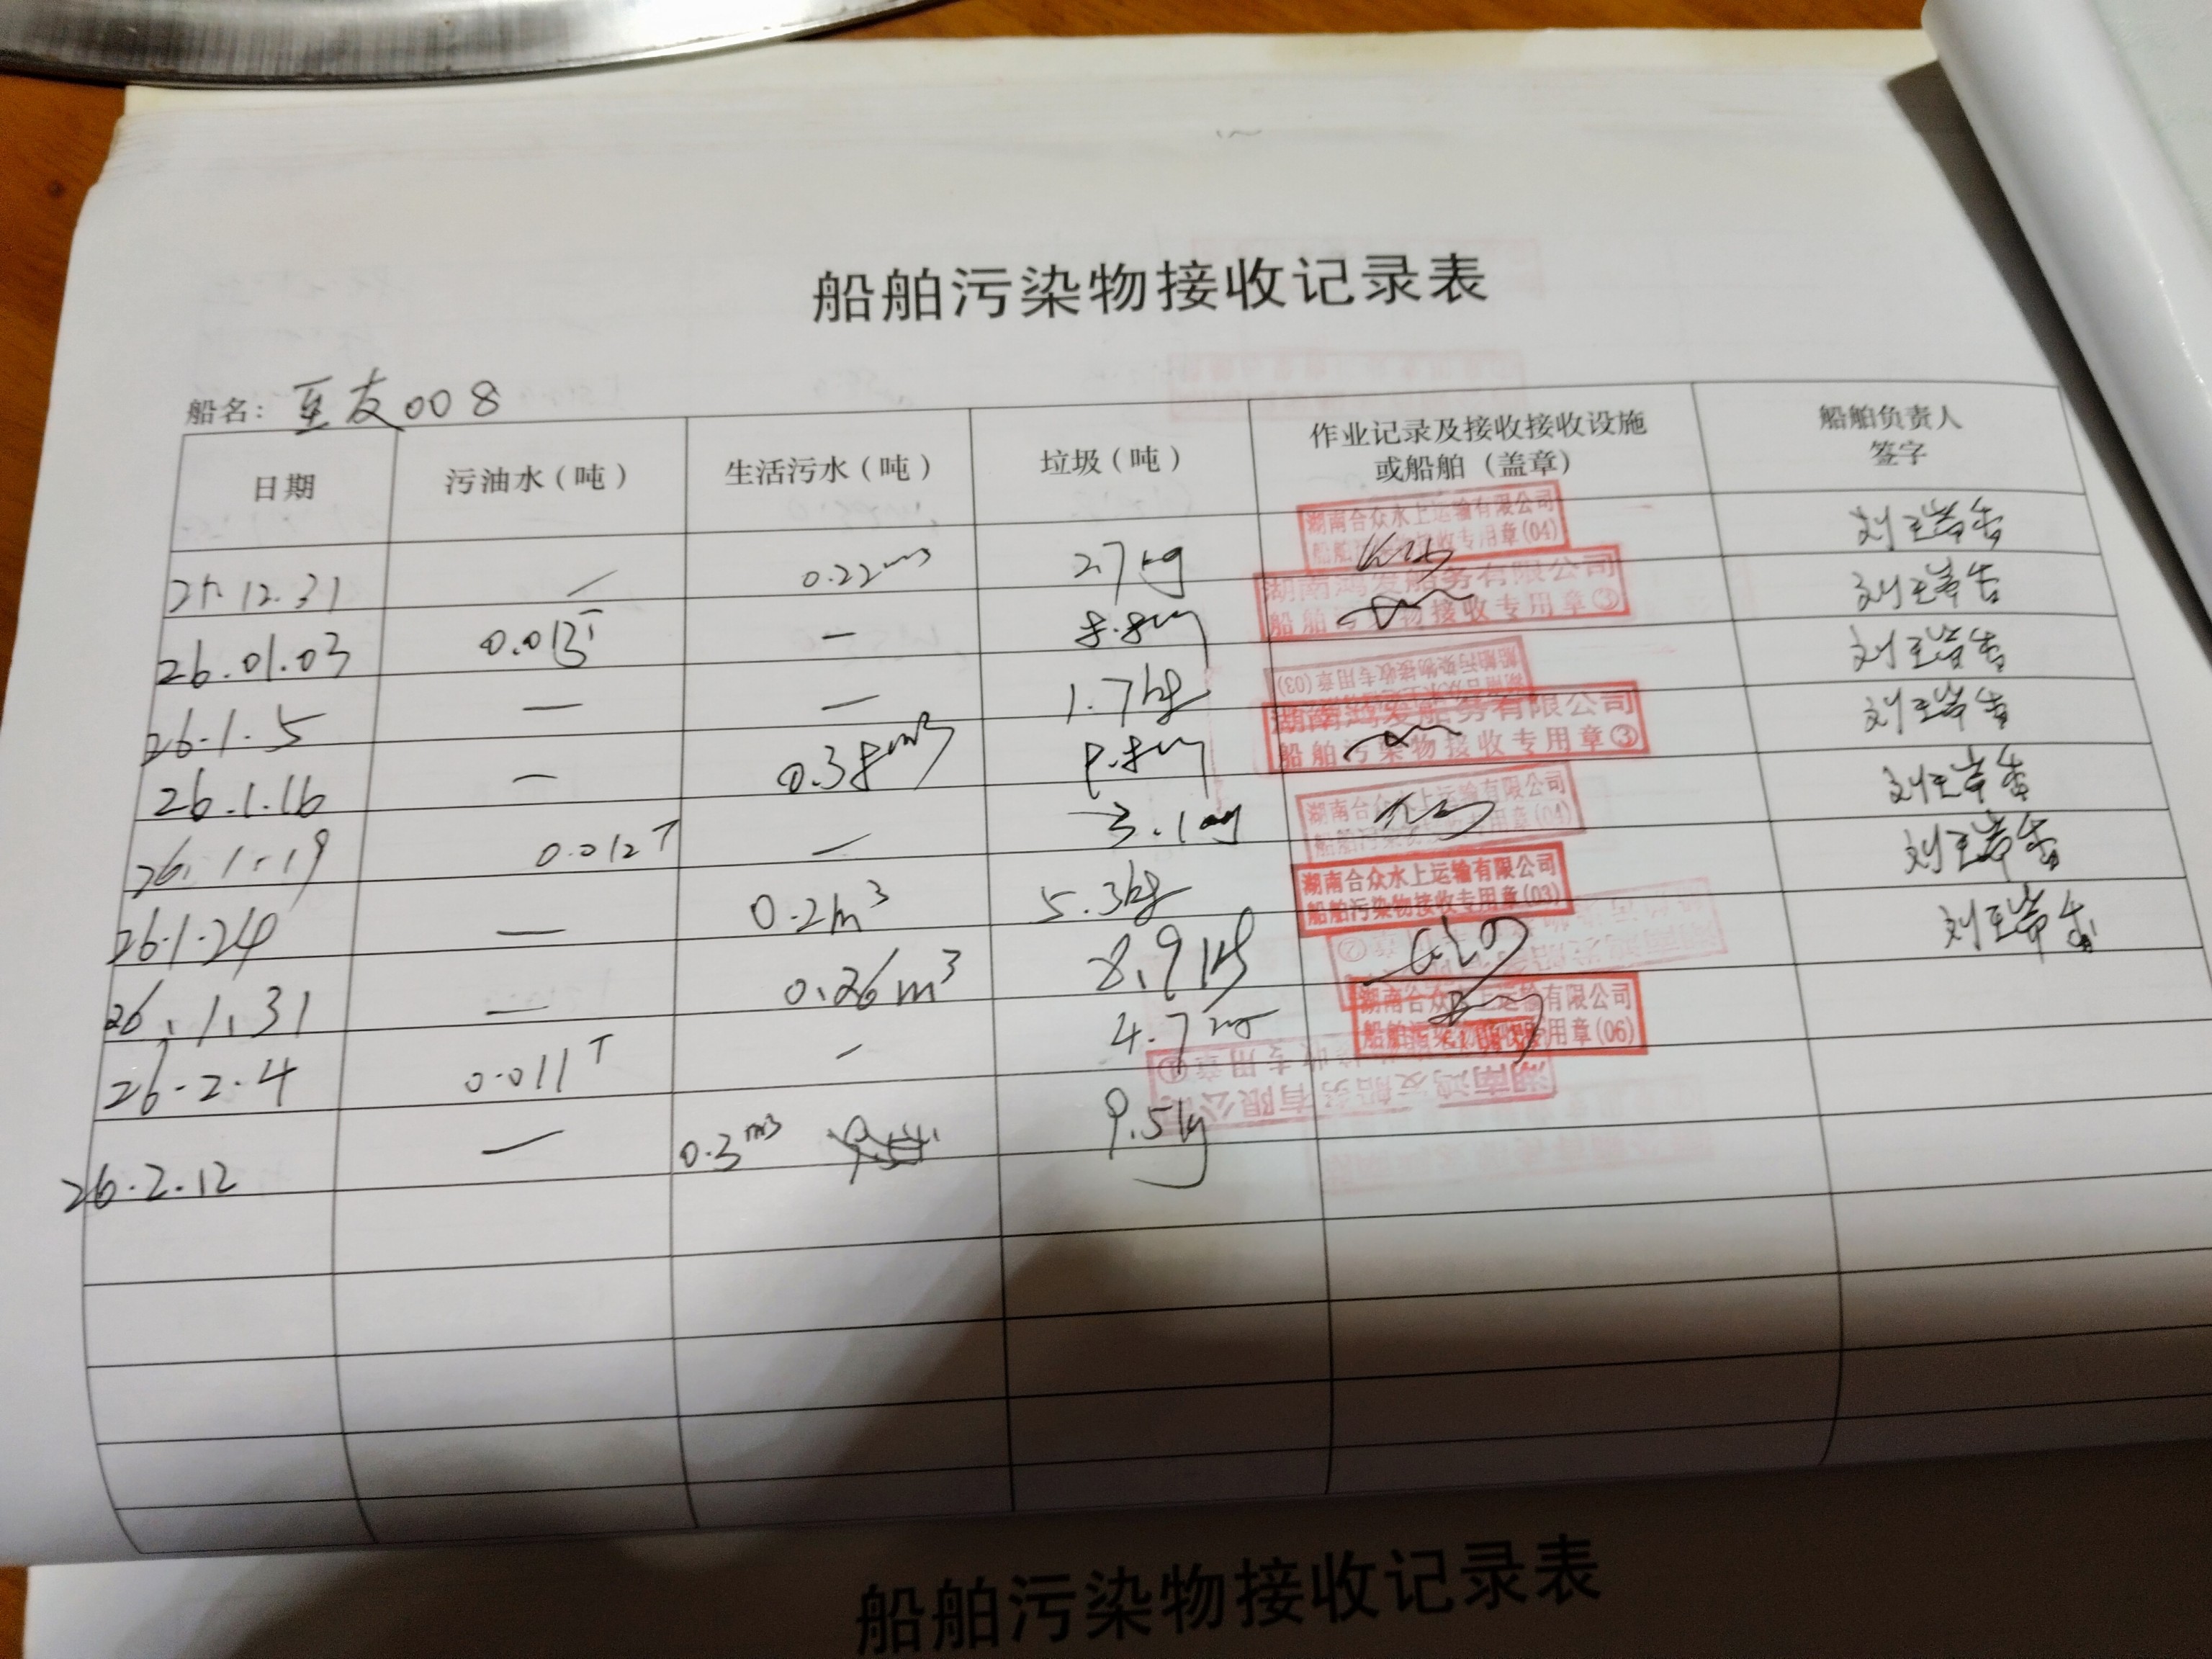 船舶污染物接收记录表
船名: 至友008
日期 污油水(吨) 生活污水(吨) 垃圾(吨) 作业记录及接收接收设施或船舶(盖章) 船舶负责人签字
25.12.31 / 0.22m³ 2.7kg 湖南合众水上运输有限公司 船舶污染物接收专用章(04)
26.01.03 0.013T — 8.8kg 湖南鸿发船务有限公司 船舶污染物接收专用章③
26.1.5 — — 1.7kg 湖南合众水上运输有限公司 船舶污染物接收专用章(03)
26.1.16 — 0.38m³ 湖南鸿发船务有限公司 船舶污染物接收专用章③
26.1.19 0.012T — 3.1kg 湖南合众水上运输有限公司 船舶污染物接收专用章(04)
26.1.24 — 0.2m³ 5.3kg 湖南合众水上运输有限公司 船舶污染物接收专用章(03)
26.1.31 — 0.26m³ 8.9kg
26.2.4 0.011T — 4.7kg 湖南合众水上运输有限公司 船舶污染物接收专用章(06)
26.2.12 — 0.3m³ 9.5kg 湖南鸿发船务有限公司
船舶污染物接收记录表